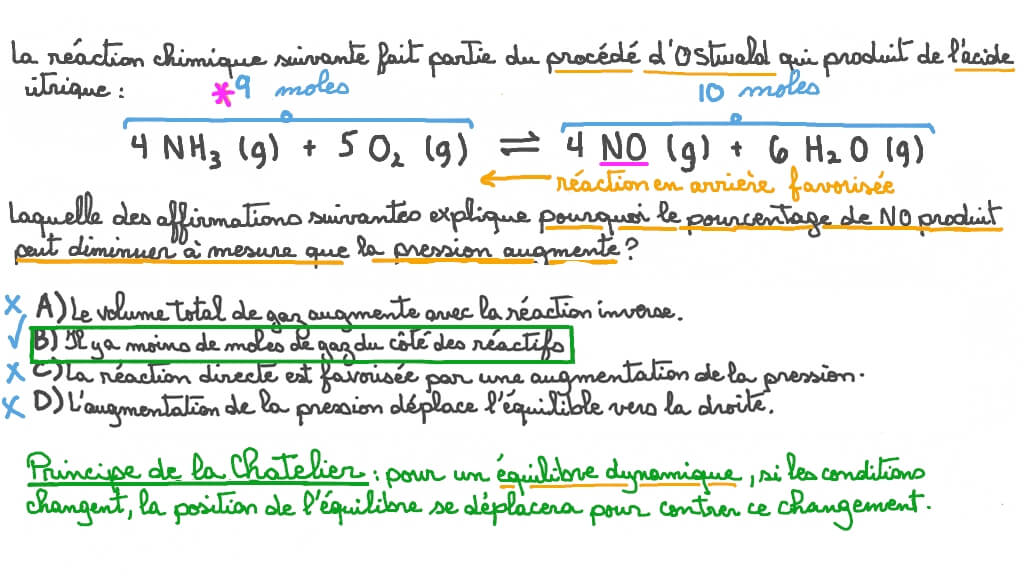 La réaction chimique suivante fait partie du procédé d'Ostwald qui produit de l'acide
itrique :
*9 moles 10 moles
4 NH₃ (g) + 5 O₂ (g) ⇌ 4 NO (g) + 6 H₂O (g)
← réaction en arrière favorisée
Laquelle des affirmations suivantes explique pourquoi le pourcentage de NO produit
peut diminuer à mesure que la pression augmente ?
x A) Le volume total de gaz augmente avec la réaction inverse.
✓ B) Il y a moins de moles de gaz du côté des réactifs
x C) La réaction directe est favorisée par une augmentation de la pression.
x D) L'augmentation de la pression déplace l'équilible vers la droite.
Principe de la Chatelier : pour un équilibre dynamique, si les conditions
changent, la position de l'équilibre se déplacera pour contrer ce changement.